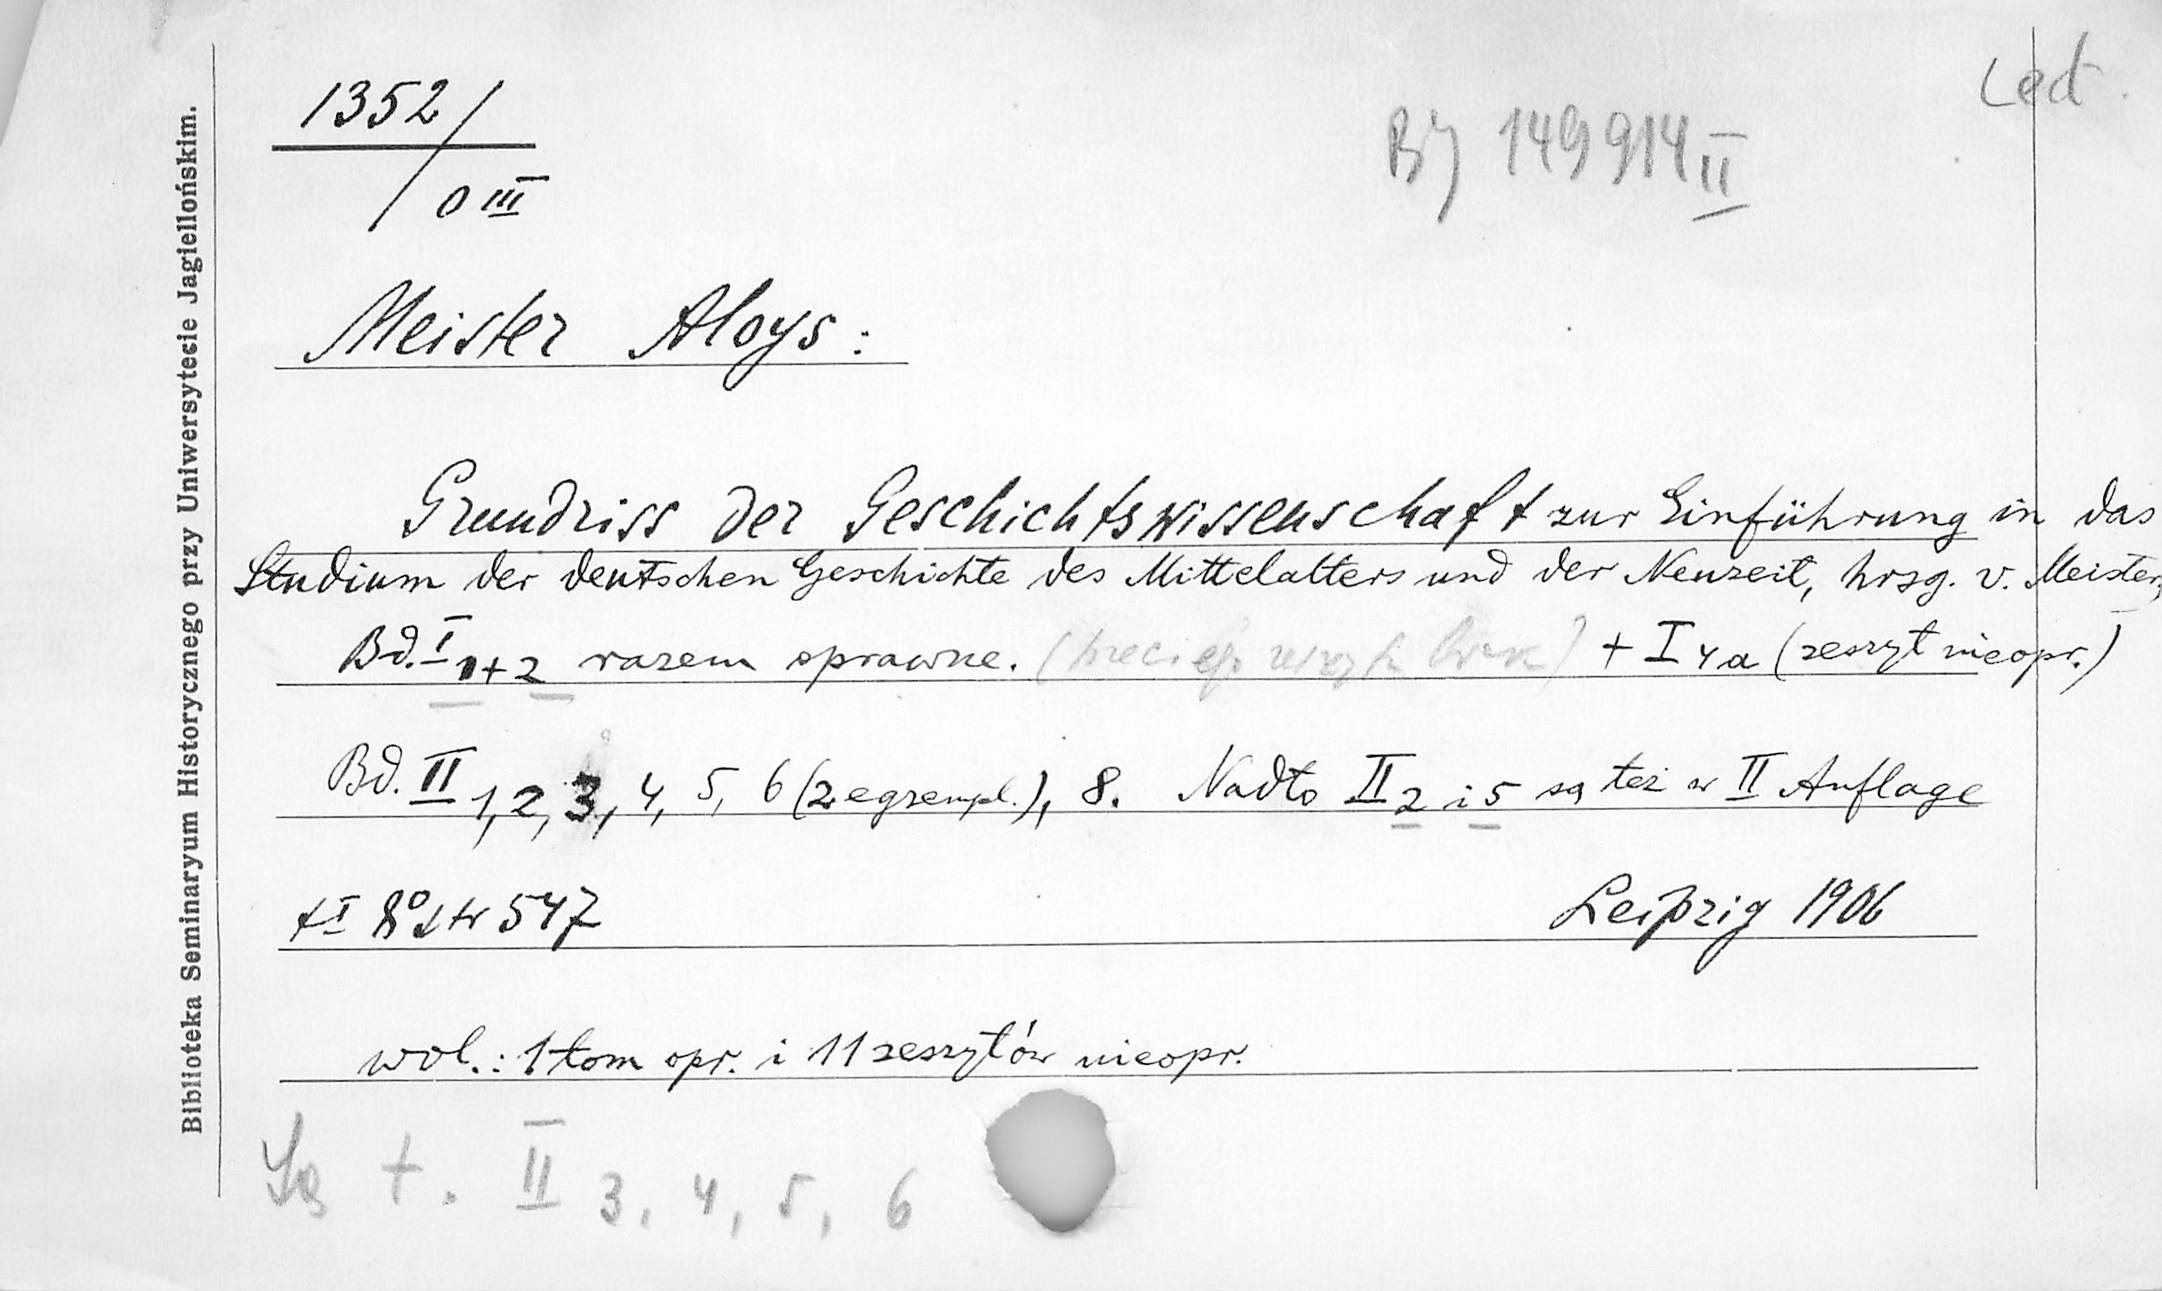 Biblioteka Seminaryum Historycznego przy Uniwersytecie Jagiellońskim.
1352/
/0 III
BJ 149914 II
Meister Aloys:
Grundriss der Geschichtswissenschaft zur Einführung in das
Studium der deutschen Geschichte des Mittelalters und der Neuzeit, hrsg. v. Meister,
Bd. I 1+2 razem oprawne. (trzeciego zeszytu brak) + I 4a (zeszyt nieopr.)
Bd. II 1, 2, 3, 4, 5, 6 (2 egzempl.), 8. Nadto II 2 i 5 są też w II Auflage
t I 8° str 547
Leipzig 1906
wol.: 1 tom opr. i 11 zeszytów nieopr.
Są t. II 3, 4, 5, 6